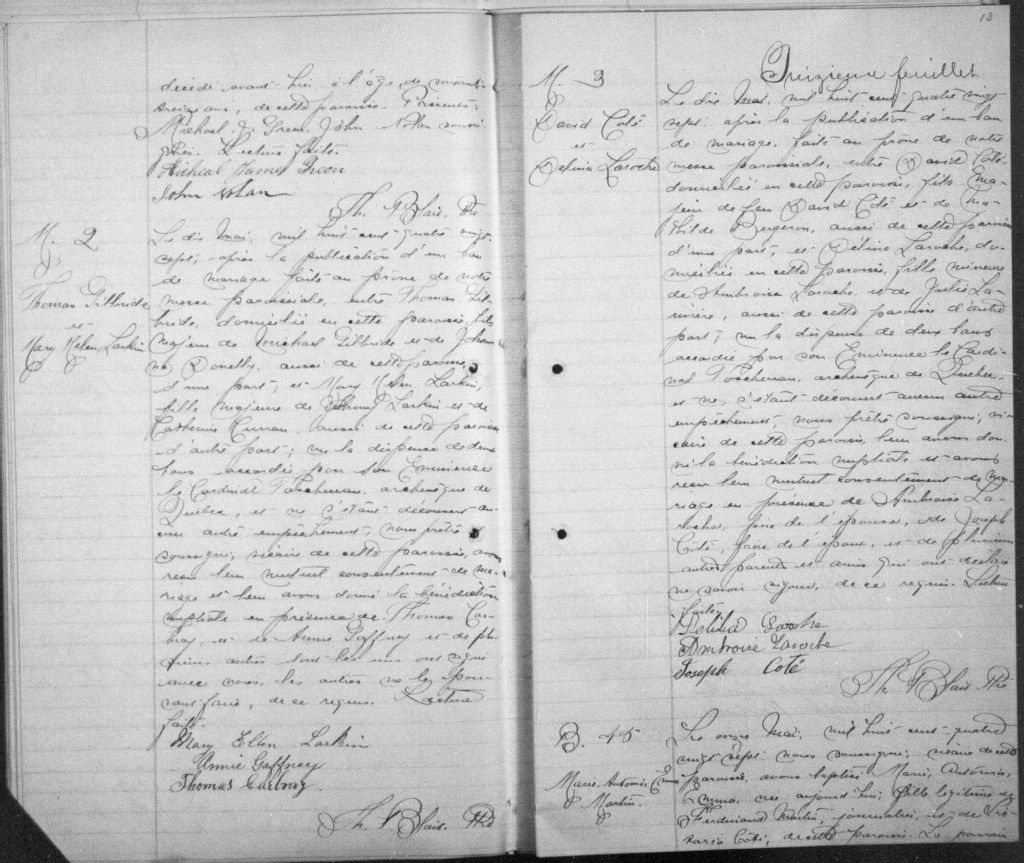 décédé avant-hier à l'âge de soixante
treize ans, de cette paroisse. Présents:
Michael J. Green, John Nolan
Lecture faite.
Michial James Green
John Nolan
Th. A Blais. Ptre
M. 2
Thomas Gilbride
et
Mary Helen Larkin
Le dix Mai, mil huit-cent-quatre vingt
sept, après la publication d'un ban
de mariage faite au prône de notre
messe paroissiale, entre Thomas Gil-
bride, domicilié en cette paroisse, fils
majeur de Michael Gilbride et de Johan
na Donelly, aussi de cette paroisse,
d'une part, et Mary Helen Larkin,
fille majeure de Larkin et de
Catherine Curran, aussi de cette paroisse
d'autre part; vu la dispense de deux
bans accordée par Son Eminence
le Cardinal Taschereau, archevêque de
Québec, et ne s'étant découvert au-
cun autre empêchement, nous prêtre
soussigné, vicaire de cette paroisse, avons
reçu leur mutuel consentement de ma-
riage et leur avons donné la bénédiction
nuptiale en présence de Thomas Car-
bray, et de Annie Gaffney et de plu-
sieurs autres dont les uns ont signé
avec nous, les autres ne le pou-
vant faire, de ce requis. Lecture
faite.
Mary Ellen Larkin
Annie Gaffney
Thomas Carbray
Th. A Blais. Ptre
13
feuillet
M. 3
David Coté
et
Delina Laroche
Le dix Mai, mil huit cent quatre vingt
sept, après la publication d'un ban
de mariage, faite au prône de notre
messe paroissiale, entre David Coté,
domicilié en cette paroisse, fils ma-
jeur de feu David Coté et de Ma-
thilde Bergeron, aussi de cette paroisse
d'une part, et Delina Laroche, do-
miciliée en cette paroisse, fille mineure
de Ambroise Laroche et de Julie La-
rivière, aussi de cette paroisse d'autre
part; vu la dispense de deux bans
accordée par son Eminence le Cardi-
nal Taschereau, archevêque de Québec,
et ne s'étant découvert aucun autre
empêchement, nous prêtre soussigné, vi-
caire de cette paroisse, leur avons don-
né la bénédiction nuptiale et avons
reçu leur mutuel consentement de ma-
riage en présence de Ambroise La-
roche, père de l'épouse, et de Joseph
Coté, frère de l'époux, et de plusieurs
autres parents et amis qui ont déclaré
ne savoir signer, de ce requis. Lecture
faite.
Laroche
Ambroise Laroche
Joseph Coté
Th. A Blais. Ptre
B. 45
Marie Antonia Emma
Martin
Le onze Mai, mil huit cent-quatre
vingt sept nous soussigné, vicaire de cette
paroisse, avons baptisé Marie, Antonia,
Emma, née aujourd'hui, fille légitime de
Ferdinand Martin, journalier, et de
Coté, de cette paroisse. Le parrain